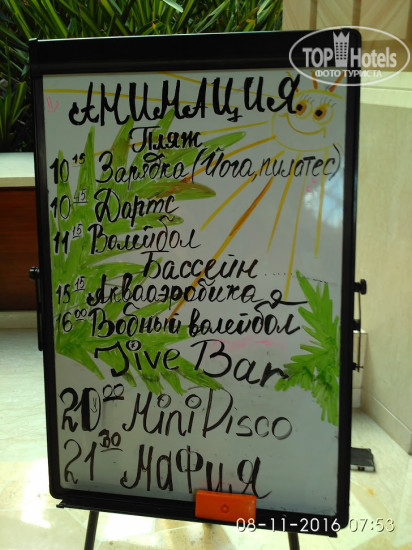 TOP Hotels
ФОТО ТУРИСТА
АНИМАЦИЯ
Пляж
10 15 Зарядка (Йога, пилатес)
10 45 Дартс
11 15 Волейбол
Бассейн
15 15 Аквааэробика
16 00 Водный волейбол
Jive Bar
20 00 Mini Disco
21 30 Мафия
08-11-2016 07:53